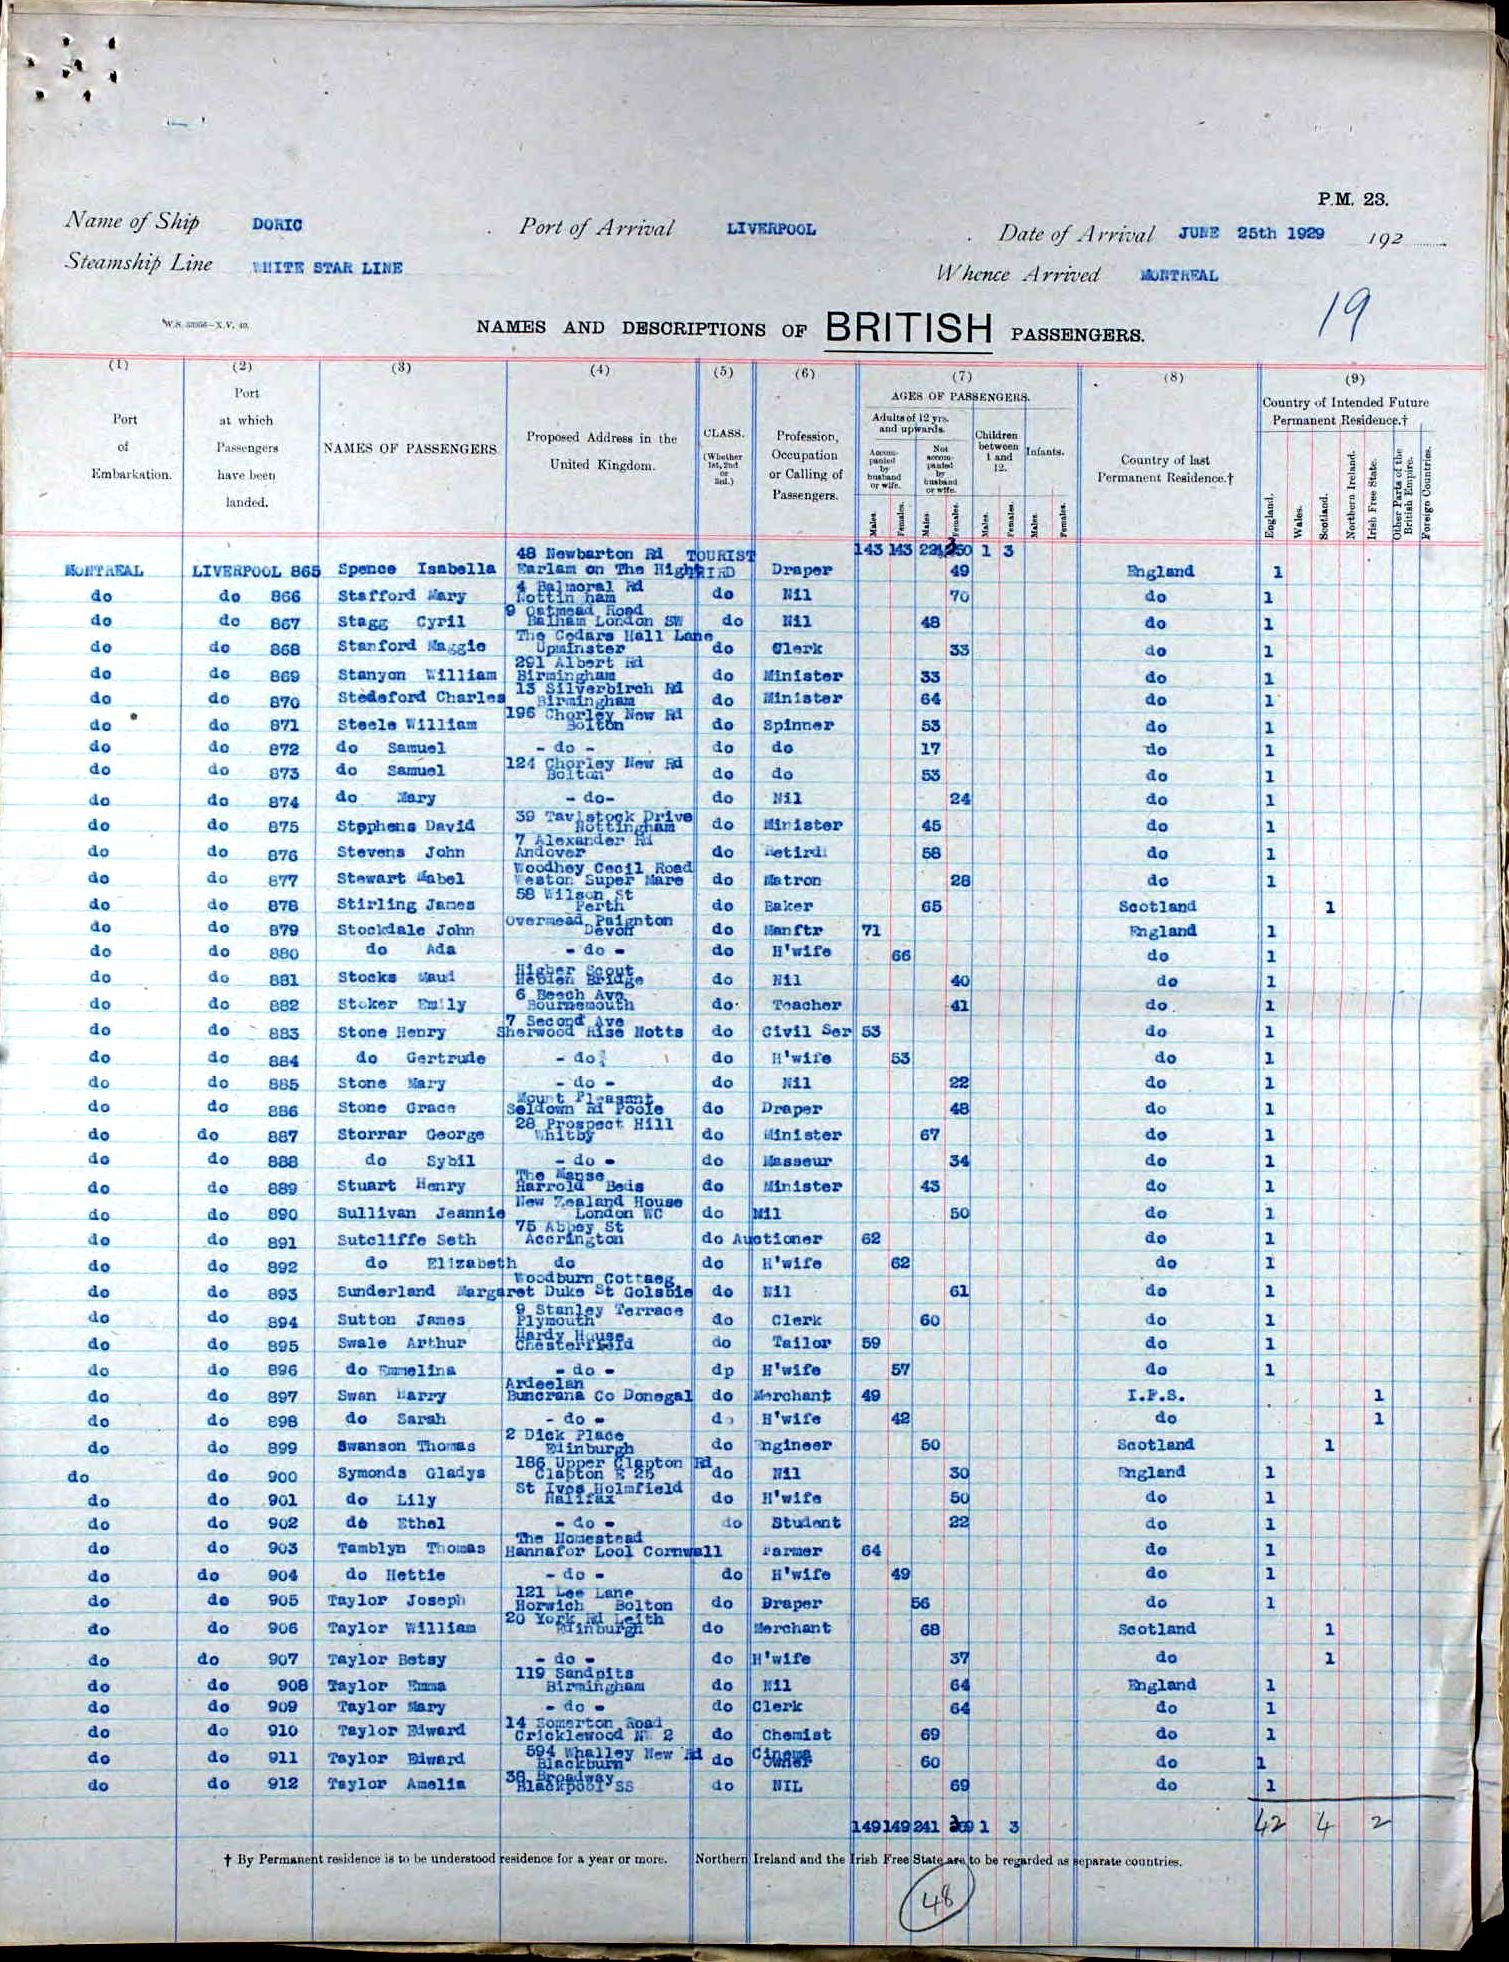 P.M. 23.
Name of Ship DORIC Port of Arrival LIVERPOOL Date of Arrival JUNE 25th 1929 192
Steamship Line WHITE STAR LINE Whence Arrived MONTREAL
19
NAMES AND DESCRIPTIONS OF BRITISH PASSENGERS.
(1) (2) (3) (4) (5) (6) (7) (8) (9)
Port of Embarkation.
Port at which Passengers have been landed.
NAMES OF PASSENGERS
Proposed Address in the United Kingdom.
CLASS. (Whether 1st, 2nd or 3rd.)
Profession, Occupation or Calling of Passengers.
AGES OF PASSENGERS.
Adults of 12 yrs. and upwards.
Accompanied by husband or wife.
Not accompanied by husband or wife.
Children between 1 and 12.
Infants.
Males. Females. Males. Females. Males. Females. Males. Females.
Country of last Permanent Residence.†
Country of Intended Future Permanent Residence.†
England. Wales. Scotland. Northern Ireland. Irish Free State. Other Parts of the British Empire. Foreign Countries.
143 143 1 3
48 Newbarton Rd TOURIST
MONTREAL LIVERPOOL 865 Spence Isabella Earlam on The High Draper 49 England 1
4 Balmoral Rd
do do 866 Stafford Mary Nottin ham do Nil 70 do 1
9 Oatmead Road
do do 867 Stagg Cyril Balham London SW do Nil 48 do 1
The Cedars Hall Lane
do do 868 Stanford Maggie Upminster do Clerk 33 do 1
291 Albert Rd
do do 869 Stanyon William Birmingham do Minister 33 do 1
13 Silverbirch Rd
do do 870 Stedeford Charles Birmingham do Minister 64 do 1
196 Chorley New Rd
do do 871 Steele William Bolton do Spinner 53 do 1
do do 872 do Samuel - do - do do 17 do 1
124 Chorley New Rd
do do 873 do Samuel Bolton do do 53 do 1
do do 874 do Mary - do- do Nil 24 do 1
39 Tavistock Drive
do do 875 Stephens David Nottingham do Minister 45 do 1
7 Alexander Rd
do do 876 Stevens John Andover do Retird 58 do 1
Woodhey Cecil Road
do do 877 Stewart Mabel Weston Super Mare do Matron 28 do 1
58 Wilson St
do do 878 Stirling James Perth do Baker 65 Scotland 1
Overmead Paignton
do do 879 Stockdale John Devon do Manftr 71 England 1
do do 880 do Ada - do - do H'wife 66 do 1
Higher Scout
do do 881 Stocks Maud Hebden Bridge do Nil 40 do 1
6 Beech Ave
do do 882 Stoker Emily Bournemouth do Teacher 41 do 1
7 Second Ave
do do 883 Stone Henry Sherwood Rise Notts do Civil Ser 53 do 1
do do 884 do Gertrude - do do H'wife 53 do 1
do do 885 Stone Mary - do - do Nil 22 do 1
Mount Pleasant
do do 886 Stone Grace Seldown Rd Poole do Draper 48 do 1
28 Prospect Hill
do do 887 Storrar George Whitby do Minister 67 do 1
do do 888 do Sybil - do - do Masseur 34 do 1
The Manse
do do 889 Stuart Henry Harrold Beds do Minister 43 do 1
New Zealand House
do do 890 Sullivan Jeannie London WC do Nil 50 do 1
75 Abbey St
do do 891 Sutcliffe Seth Accrington do Auctioner 62 do 1
do do 892 do Elizabeth do do H'wife 62 do 1
Woodburn Cottaeg
do do 893 Sunderland Margaret Duke St Golsbie do Nil 61 do 1
9 Stanley Terrace
do do 894 Sutton James Plymouth do Clerk 60 do 1
Hardy House
do do 895 Swale Arthur Chesterfield do Tailor 59 do 1
do do 896 do Emmelina - do - dp H'wife 57 do 1
Ardeelan
do do 897 Swan Harry Buncrana Co Donegal do Merchant 49 I.F.S. 1
do do 898 do Sarah - do - do H'wife 42 do 1
2 Dick Place
do do 899 Swanson Thomas Edinburgh do Engineer 50 Scotland 1
186 Upper Clapton Rd
do do 900 Symonds Gladys Clapton E 25 do Nil 30 England 1
St Ives Holmfield
do do 901 do Lily Halifax do H'wife 50 do 1
do do 902 do Ethel - do - do Student 22 do 1
The Homestead
do do 903 Tamblyn Thomas Hannafor Lool Cornwall Farmer 64 do 1
do do 904 do Hettie - do - do H'wife 49 do 1
121 Lee Lane
do do 905 Taylor Joseph Horwich Bolton do Draper 56 do 1
20 York Rd Leith
do do 906 Taylor William Edinburgh do Merchant 68 Scotland 1
do do 907 Taylor Betsy - do - do H'wife 37 do 1
119 Sandpits
do do 908 Taylor Emma Birmingham do Nil 64 England 1
do do 909 Taylor Mary - do - do Clerk 64 do 1
14 Somerton Road
do do 910 Taylor Edward Cricklewood NW 2 do Chemist 69 do 1
594 Whalley New Rd Cinema
do do 911 Taylor Edward Blackburn do Owner 60 do 1
38 Broadway
do do 912 Taylor Amelia Blackpool SS do NIL 69 do 1
149 149 241 1 3 42 4 2
† By Permanent residence is to be understood residence for a year or more. Northern Ireland and the Irish Free State are to be regarded as separate countries.
48